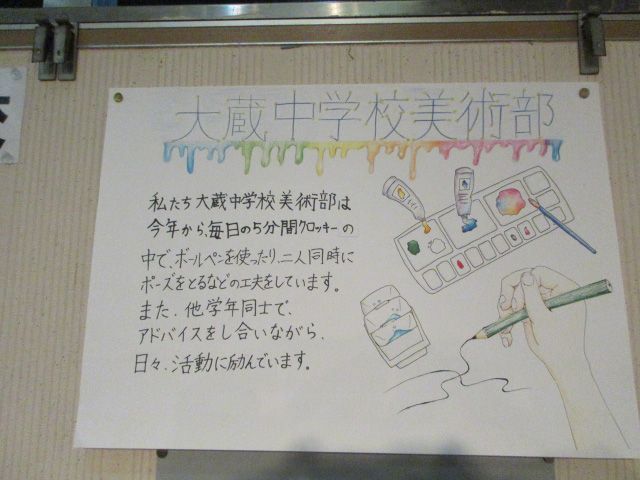 大蔵中学校美術部
私たち大蔵中学校美術部は
今年から、毎日の5分間クロッキーの
中で、ボールペンを使ったり、二人同時に
ポーズをとるなどの工夫をしています。
また、他学年同士で、
アドバイスをし合いながら、
日々、活動に励んでいます。